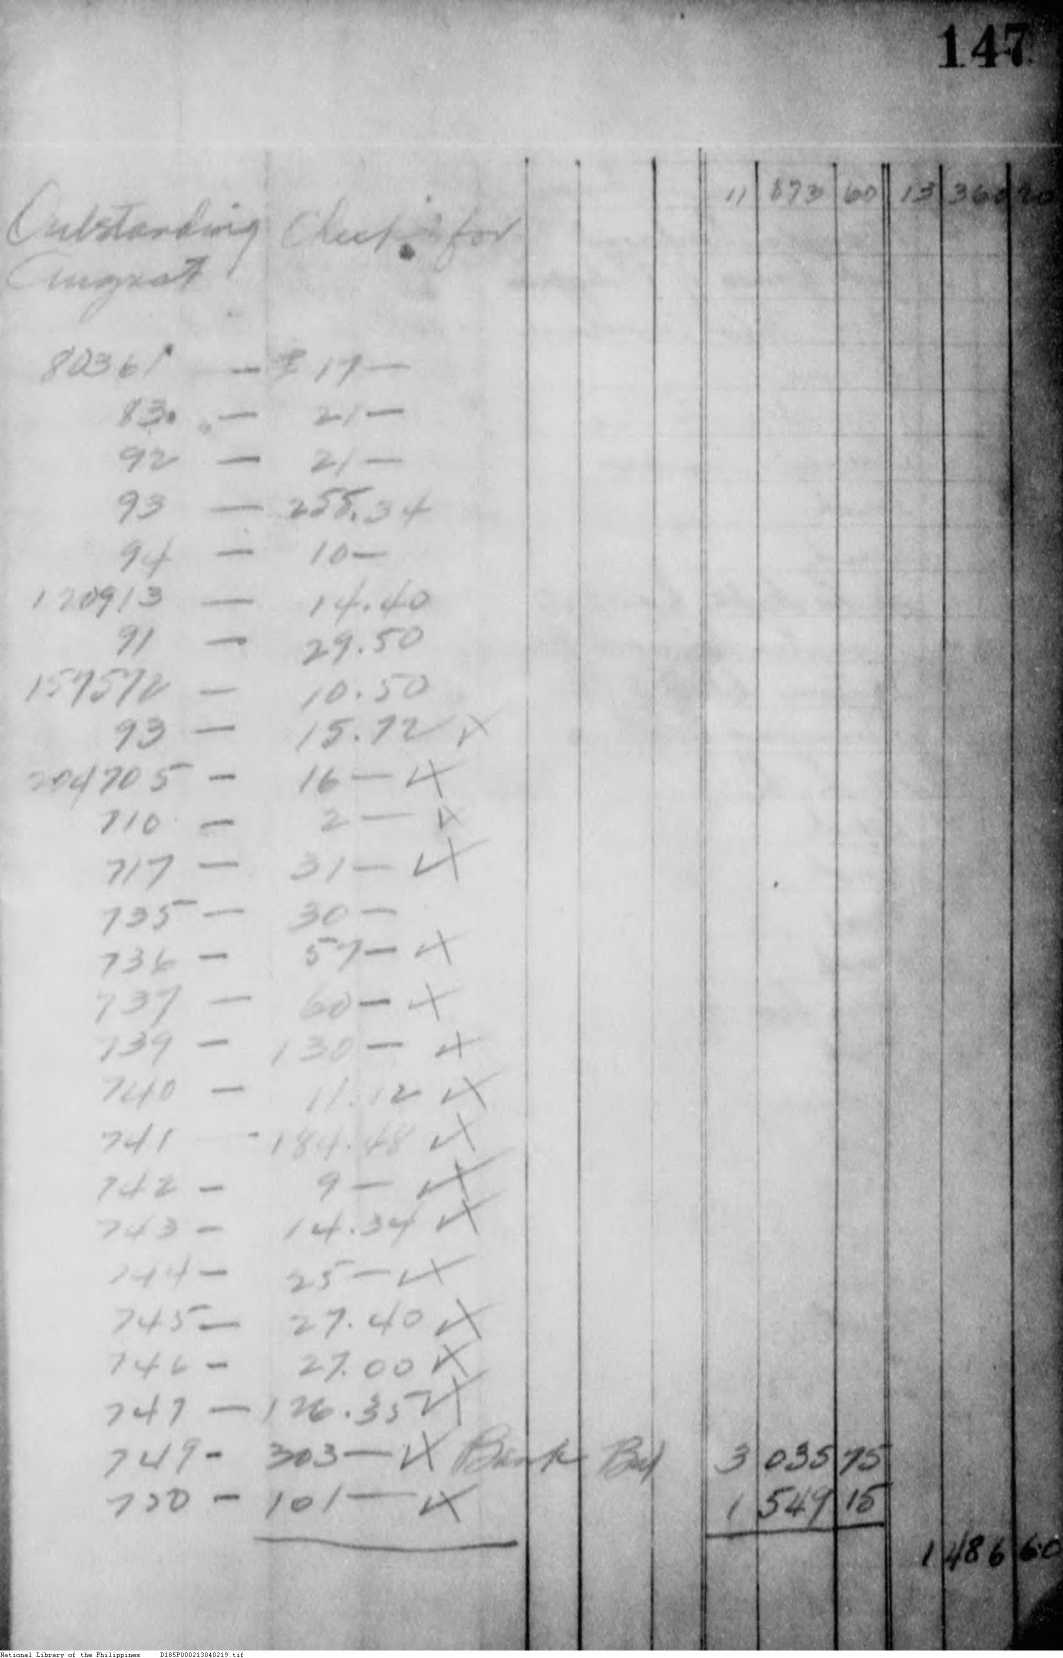 147
11 873 60 13 360 20
Outstanding Checks for
August
80361 — ₱ 17 —
83 — 21 —
92 — 21 —
93 — 255.34
94 — 10 —
120913 — 14.40
91 — 29.50
157572 — 10.50
93 — 15.72 ✓×
204705 — 16 — ✓×
710 — 2 — ✓×
717 — 31 — ✓×
735 — 30 —
736 — 57 — ✓×
737 — 60 — ✓×
739 — 130 — ✓×
740 — 11.12 ✓×
741 - 184.48 ✓×
742 — 9 — ✓×
743 — 14.34 ✓×
744 — 25 — ✓×
745 — 27.40 ✓×
746 - 27.00 ✓×
747 — 126.35 ✓×
749 - 303 — ✓× Bank Bal 3 035 75
750 - 101 — ✓× 1 549 15
1 486 60
National Library of the Philippines D185P000213040219.tif